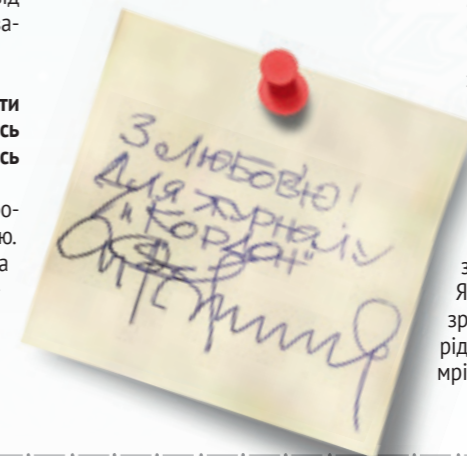 від
ва-
ти
сь
сь
ро-
ю.
а
З ЛЮБОВ'Ю!
ДЛЯ ЖУРНАЛУ
"КОРДОН"
з
Я
зр
рід
мрі